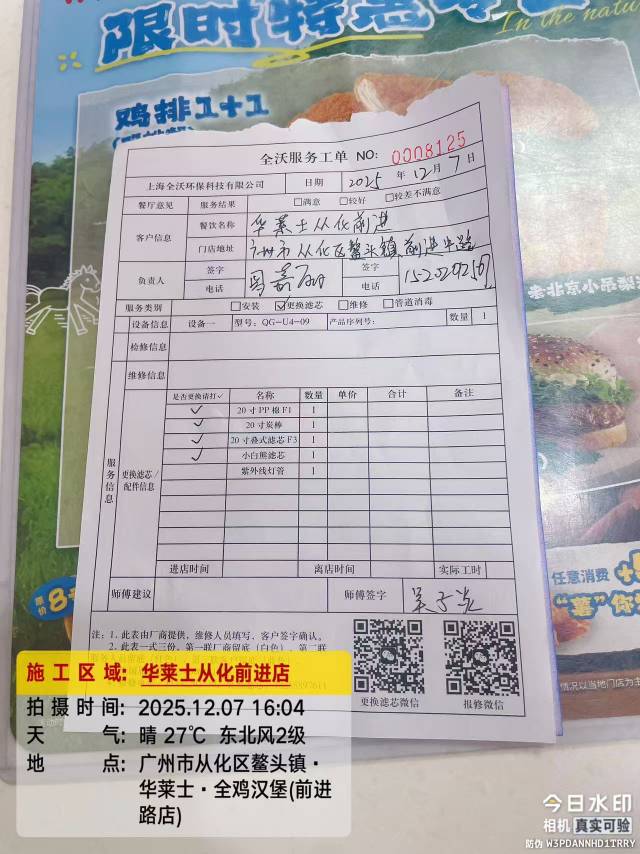 限时特惠
In the natu
鸡排1+1
全沃服务工单 NO: 0008125
上海全沃环保科技有限公司 日期 2025 年 12 月 7 日
餐厅意见 服务结果 □满意 □较好 □较差不满意
客户信息 餐饮名称 华莱士从化前进
门店地址 广州市从化区鳌头镇前进中路
负责人 签字 签字
电话 电话
服务类别 □安装 ☑更换滤芯 □维修 □管道消毒
设备信息 设备一 型号: QG-U4-09 产品序列号: 数量 1
检修信息
维修信息
服务信息 更换滤芯/配件信息
是否更换请打✓ 名称 数量 单价 合计 备注
✓ 20寸PP棉F1 1
✓ 20寸炭棒 1
✓ 20寸叠式滤芯F3 1
✓ 小白熊滤芯 1
紫外线灯管 1
进店时间 离店时间 实际工时
师傅建议 师傅签字
注: 1. 此表由厂商提供, 维修人员填写, 客户签字确认。
2. 此表一式三份, 第一联厂商留底 (白色), 第二联
更换滤芯微信 报修微信
老北京小吊梨
任意消费
"薯"你
情况以当地门店为主
原价8
施工区域: 华莱士从化前进店
拍摄时间: 2025.12.07 16:04
天 气: 晴 27℃ 东北风2级
地 点: 广州市从化区鳌头镇·
华莱士·全鸡汉堡(前进
路店)
今日水印
相机 真实可验
防伪 W3PDANNHD1TRRY